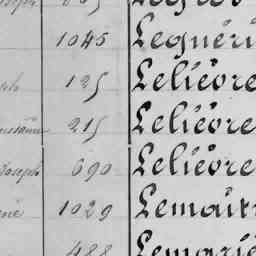 1045 Leguéri
125 Lelièvre
215 Lelièvre
Joseph 690 Lelièvre
1029 Lemaitr
488 Lemarié